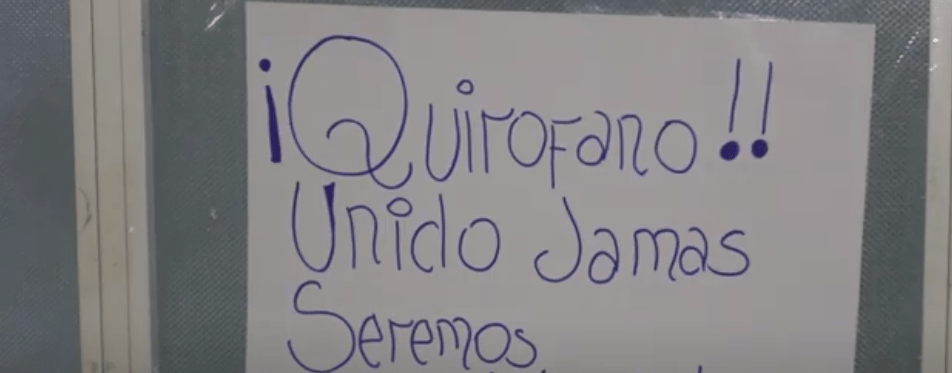 ¡Quirofano!!
Unido Jamas
Seremos